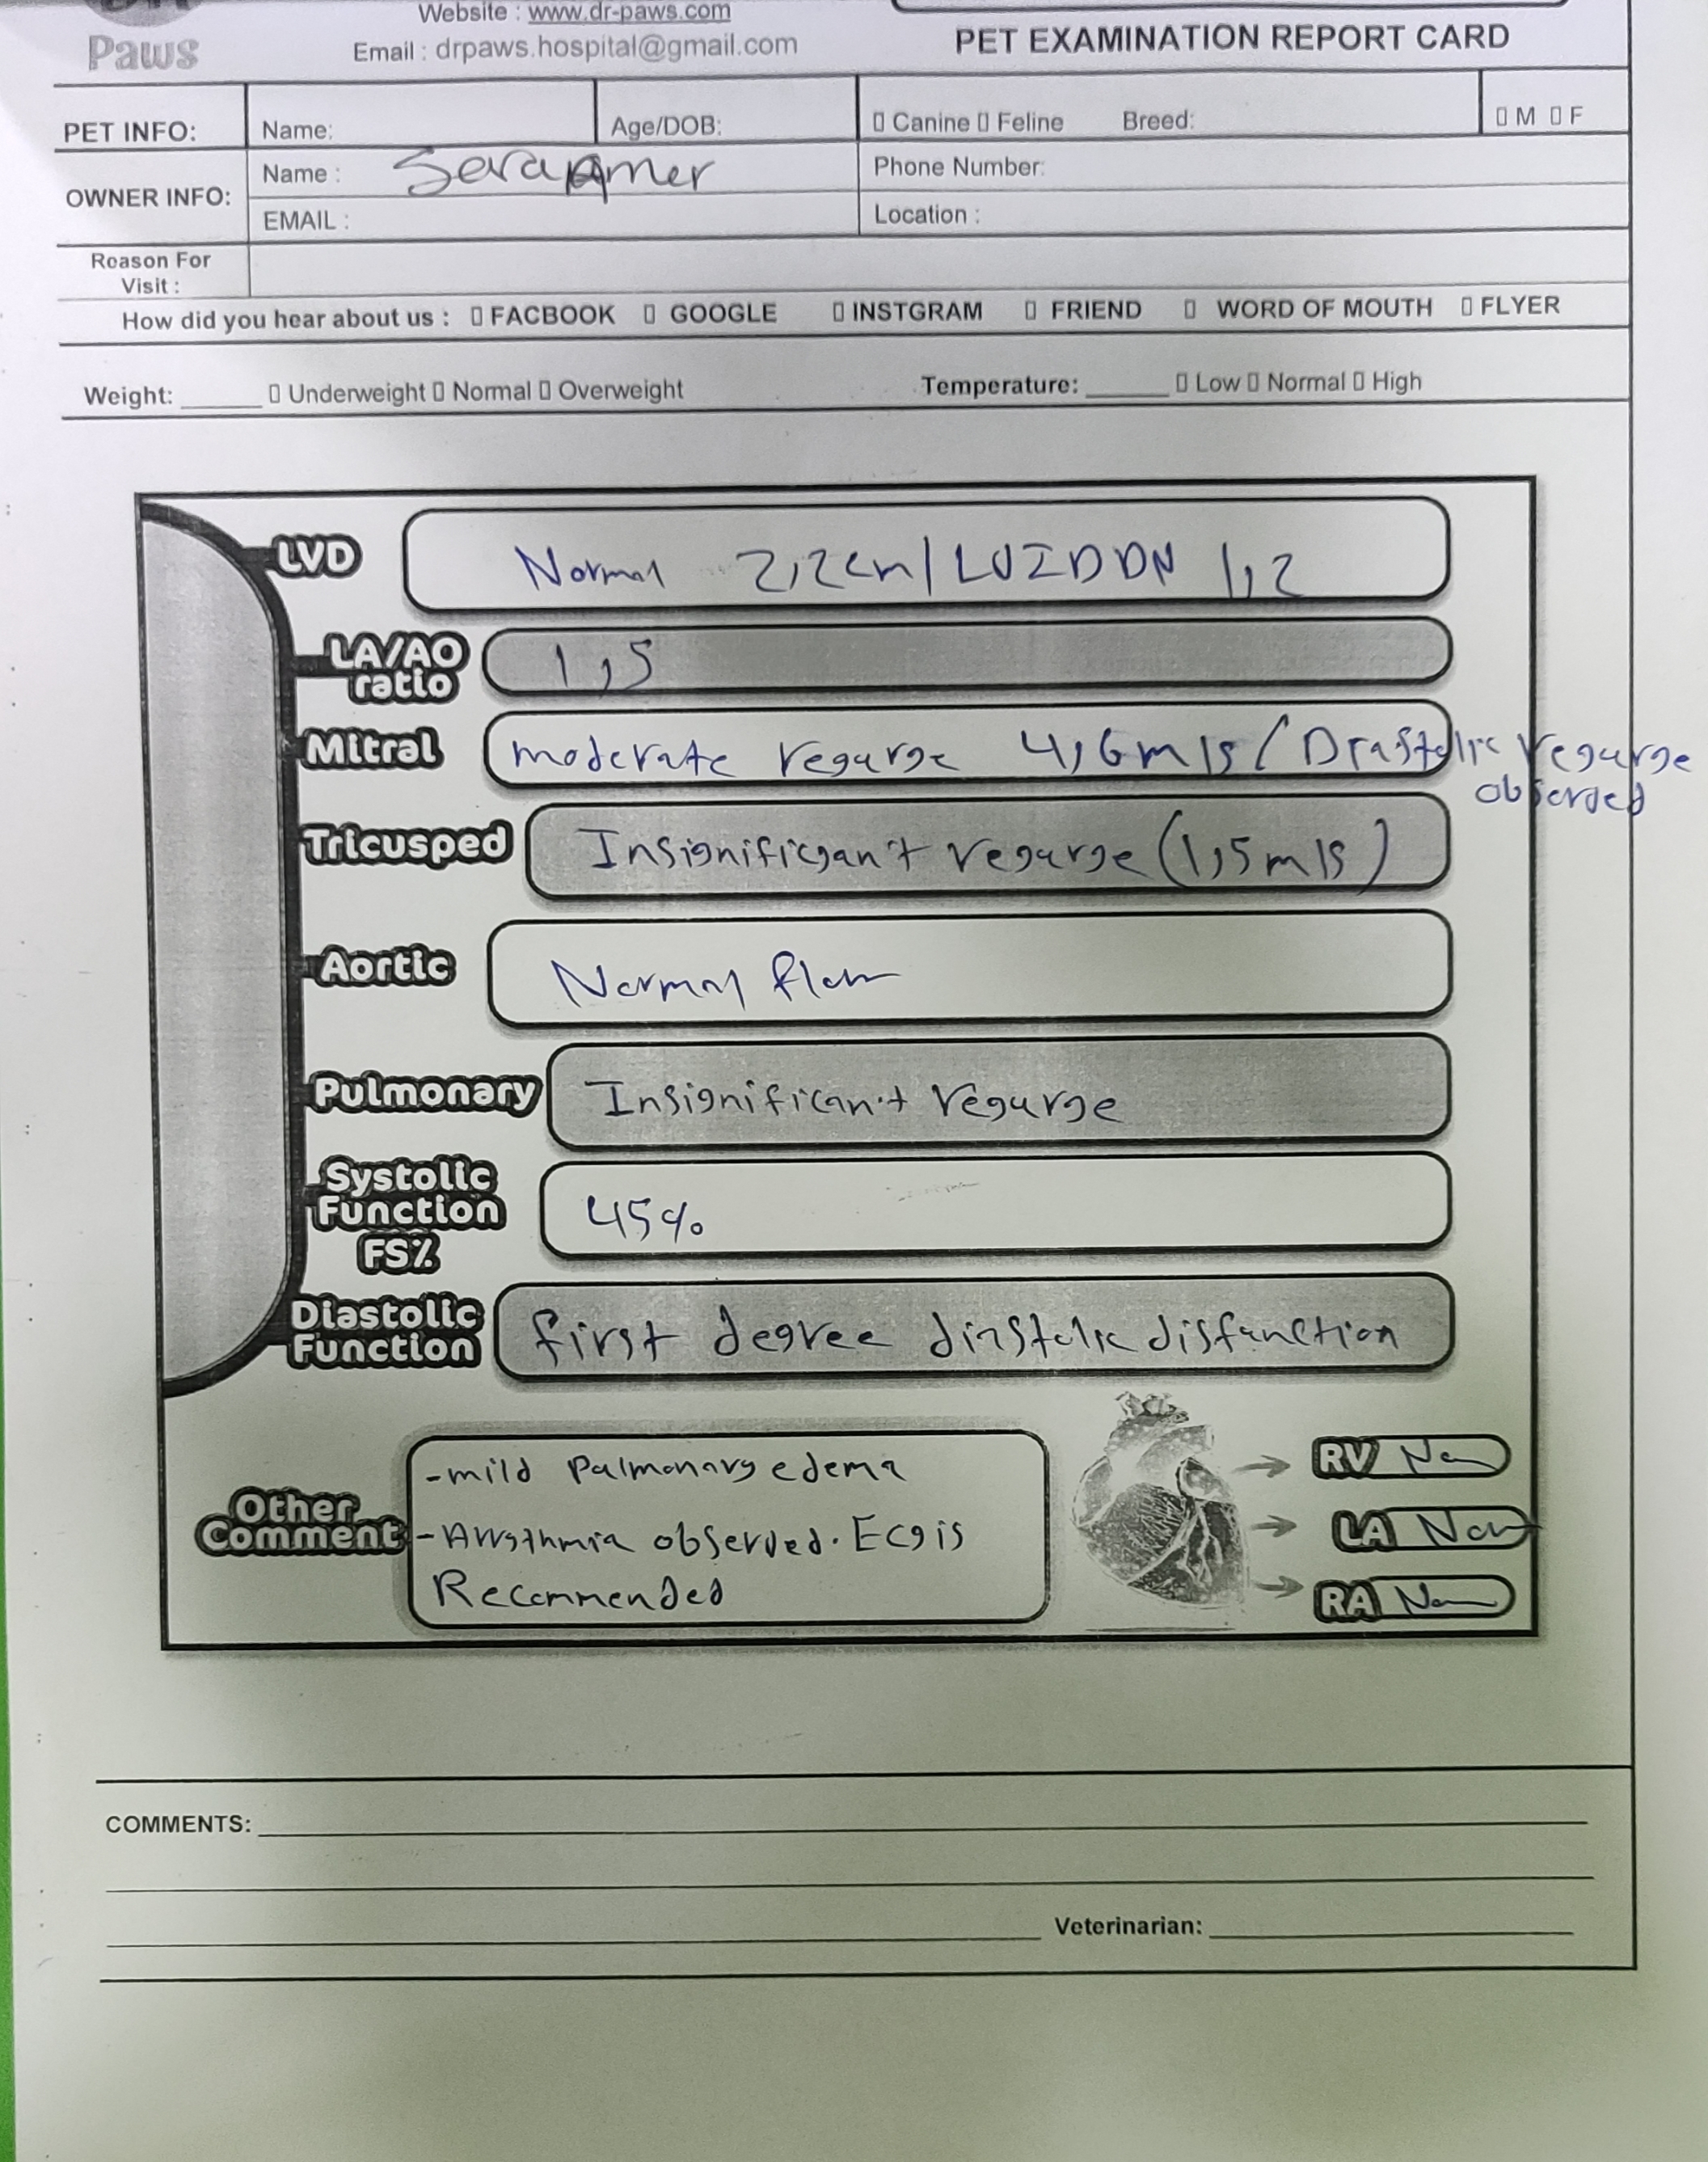 Website : www.dr-paws.com
Paws
Email : drpaws.hospital@gmail.com
PET EXAMINATION REPORT CARD
PET INFO: Name: Age/DOB: Canine Feline Breed: M F
OWNER INFO: Name : Phone Number:
EMAIL : Location :
Reason For
Visit :
How did you hear about us : FACBOOK GOOGLE INSTGRAM FRIEND WORD OF MOUTH FLYER
Weight: ______ Underweight Normal Overweight Temperature: ______ Low Normal High
LVD Normal 2,2cm/LVIDDN 1,2
LA/AO
ratio
1,5
Mitral moderate regurge 4,6m/s/Diastolic regurge
observed
Tricusped Insignificgan't regurge (1,5m/s)
Aortic Normal flow
Pulmonary Insignifican't regurge
Systolic
Function
FS%
45%
Diastolic
Function
first degree diastolic disfunction
Other
Comment
-mild Pulmonary edema
-Arrythmia observed. Ecg is
Recommended
RV
LA
RA
COMMENTS:
Veterinarian: